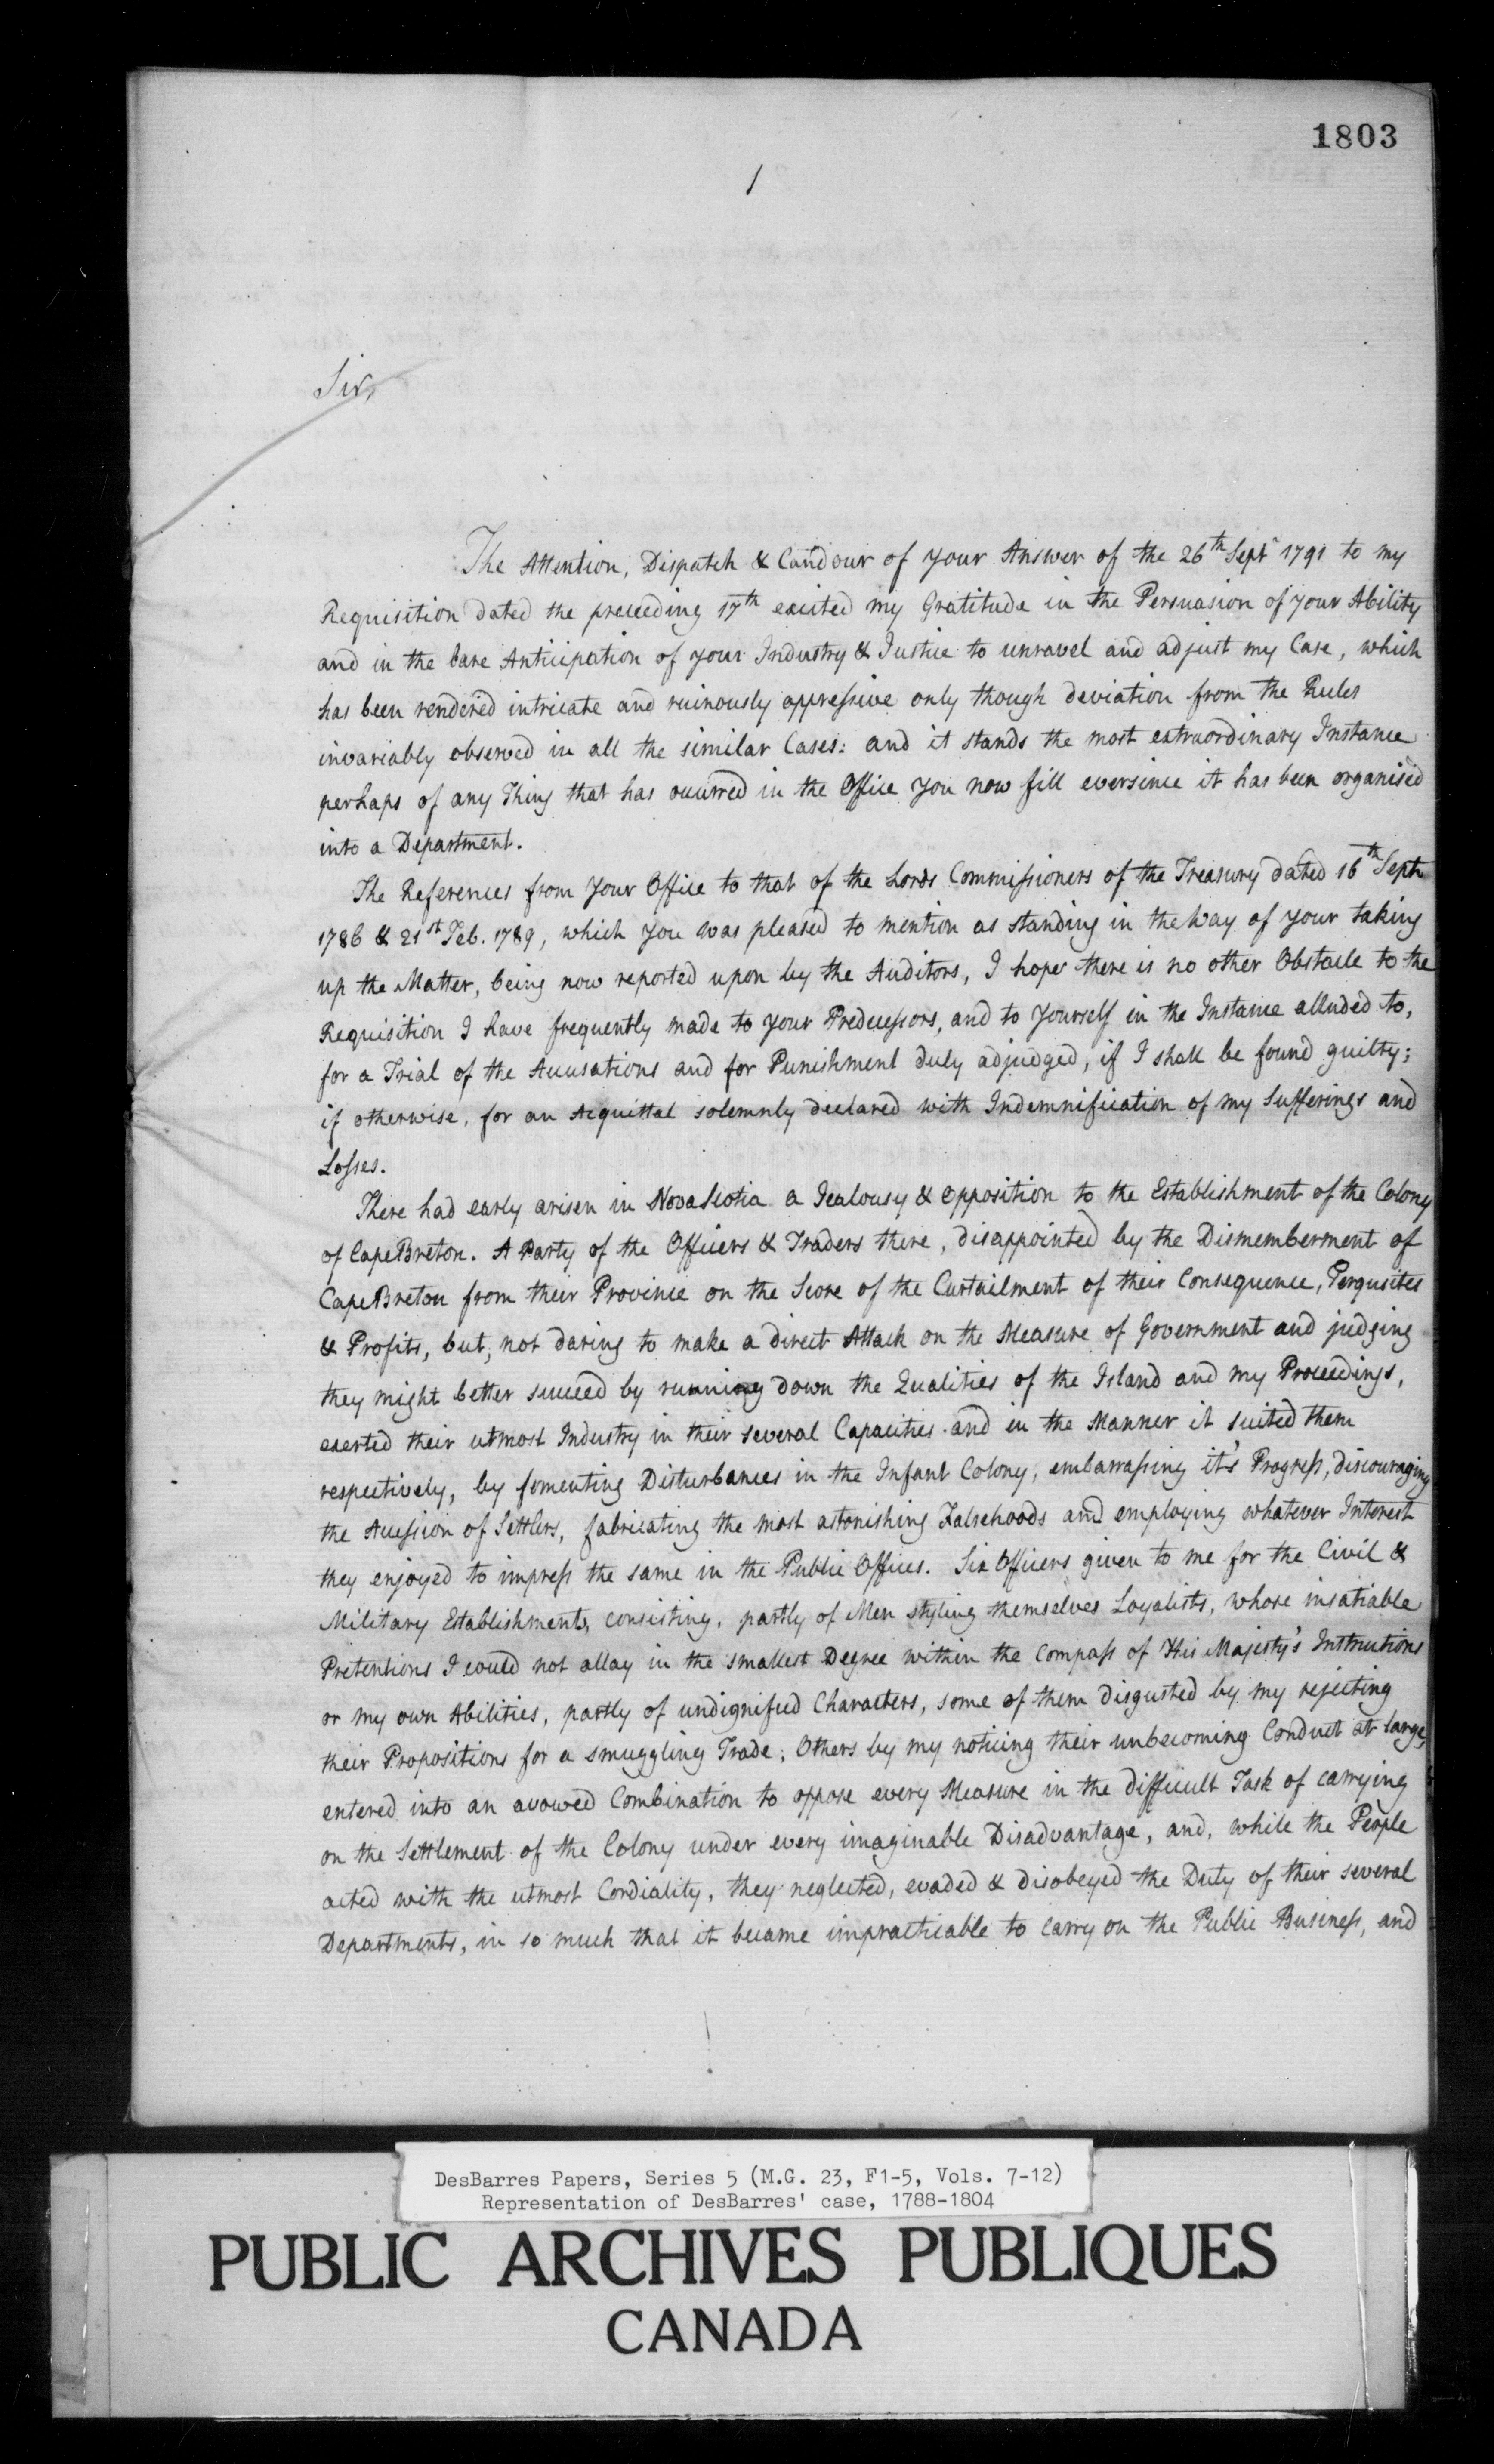 1803
1
Sir,
The Attention, Dispatch & Candour of your Answer of the 26th Septr 1791 to my
Requisition dated the preceeding 17th excited my Gratitude in the Persuasion of your Ability
and in the bare Anticipation of your Industry & Justice to unravel and adjust my Case, which
has been rendered intricate and ruinously oppressive only though deviation from the Rules
invariably observed in all the similar Cases: and it stands the most extraordinary Instance
perhaps of any Thing that has occurred in the Office you now fill eversince it has been organised
into a Department.
The References from your Office to that of the Lords Commissioners of the Treasury dated 16th Septr
1786 & 21st Feb. 1789, which you was pleased to mention as standing in the Way of your taking
up the Matter, being now reported upon by the Auditors, I hope there is no other Obstacle to the
Requisition I have frequently made to your Predecessors, and to Yourself in the Instance alluded to,
for a Trial of the Accusations and for Punishment duly adjudged, if I shall be found guilty;
if otherwise, for an Acquittal solemnly declared with Indemnification of my Sufferings and
Losses.
There had early arisen in Nova Scotia a Jealousy & Opposition to the Establishment of the Colony
of Cape Breton. A Party of the Officers & Traders there, disappointed by the Dismemberment of
Cape Breton from their Province on the Score of the Curtailment of their Consequence, Perqusites
& Profits, but, not daring to make a direct Attack on the Measure of Government and judging
they might better succeed by running down the Qualities of the Island and my Proceedings,
exerted their utmost Industry in their several Capacities and in the Manner it suited them
respectively, by fomenting Disturbances in the Infant Colony, embarrassing it's Progress, discouraging
the Accession of Settlers, fabricating the most astonishing Falsehoods and employing whatever Interest
they enjoyed to impress the same in the Public Offices. Six Officers given to me for the Civil &
Military Establishments, consisting, partly of Men styling themselves Loyalists, whose insatiable
Pretentions I could not allay in the smallest Degree within the Compass of His Majesty's Instructions
or my own Abilities, partly of undignified Characters, some of them disgusted by my rejecting
their Propositions for a smuggling Trade; Others by my noticing their unbecoming Conduct at large,
entered into an avowed Combination to oppose every Measure in the difficult Task of carrying
on the Settlement of the Colony under every imaginable Disadvantage, and, while the People
acted with the utmost Cordiality, they neglected, evaded & disobeyed the Duty of their several
Departments, in so much that it became impracticable to carry on the Public Business, and
DesBarres Papers, Series 5 (M.G. 23, F1-5, Vols. 7-12)
Representation of DesBarres' case, 1788-1804
PUBLIC ARCHIVES PUBLIQUES
CANADA